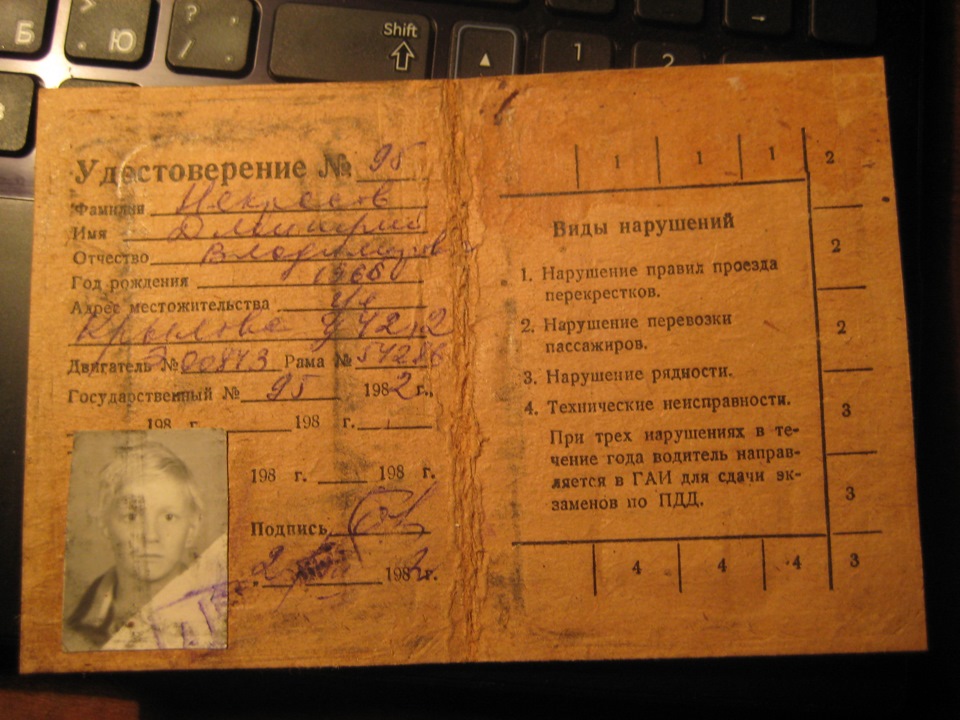 Б
Ю
?
/
Shift
1
2
Удостоверение № 95
Фамилия Некрасов
Имя Дмитрий
Отчество
Год рождения 1966
Адрес местожительства
Крылова
Двигатель № 00843 Рама № 54286
Государственный № 95 1982 г.
198 г. 198 г.
198 г. 198 г.
Подпись
2 1982 г.
1 1 1 2
Виды нарушений
1. Нарушение правил проезда
перекрестков.
2. Нарушение перевозки
пассажиров.
3. Нарушение рядности.
4. Технические неисправности.
При трех нарушениях в те-
чение года водитель направ-
ляется в ГАИ для сдачи эк-
заменов по ПДД.
2
2
3
3
4 4 4 3